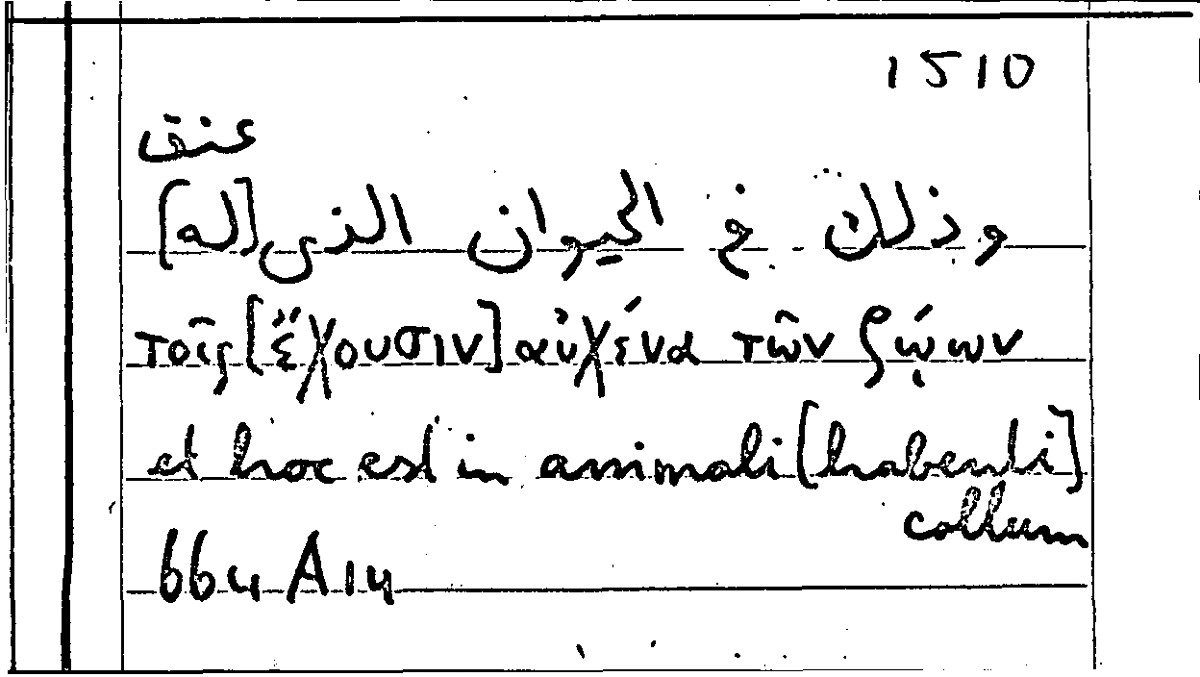 1510
عنق
وذلك في الحيوان الذى [له]
τοῖς [ἔχουσιν] αὐχένα τῶν ζῴων
et hoc est in animali [habenti]
collum
664 A14